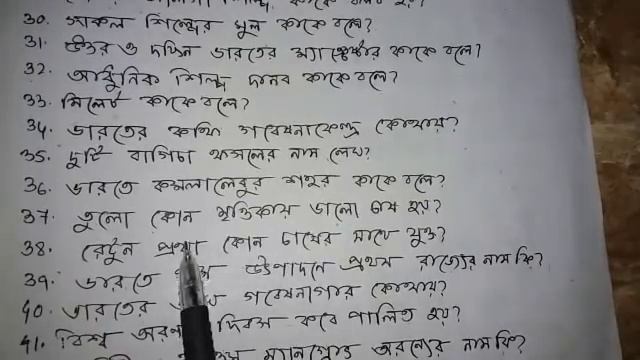 শিল্প, কাকে বলা হয়?
30. সকল শিল্পের মূল কাকে বলে?
31. উত্তর ও দক্ষিন ভারতের ম্যাঞ্চেস্টার কাকে বলে?
32. আধুনিক শিল্প দানব কাকে বলে?
33. মিলেট কাকে বলে?
34. ভারতের কফি গবেষনাকেন্দ্র কোথায়?
35. দুটি বাগিচা ফসলের নাম লেখ?
36. ভারতে কমলালেবুর শহর কাকে বলে?
37. তুলো কোন মৃত্তিকায় ভালো চাষ হয়?
38. রেটুন প্রথা কোন চাষের সাথে যুক্ত?
39. ভারতে উৎপাদনে প্রথম রাজ্যের নাম কি?
40. ভারতের গবেষনাগার কোথায়?
41. বিশ্ব দিবস কবে পালিত হয়?
ম্যানগ্রোভ অরণ্যের নাম কি?